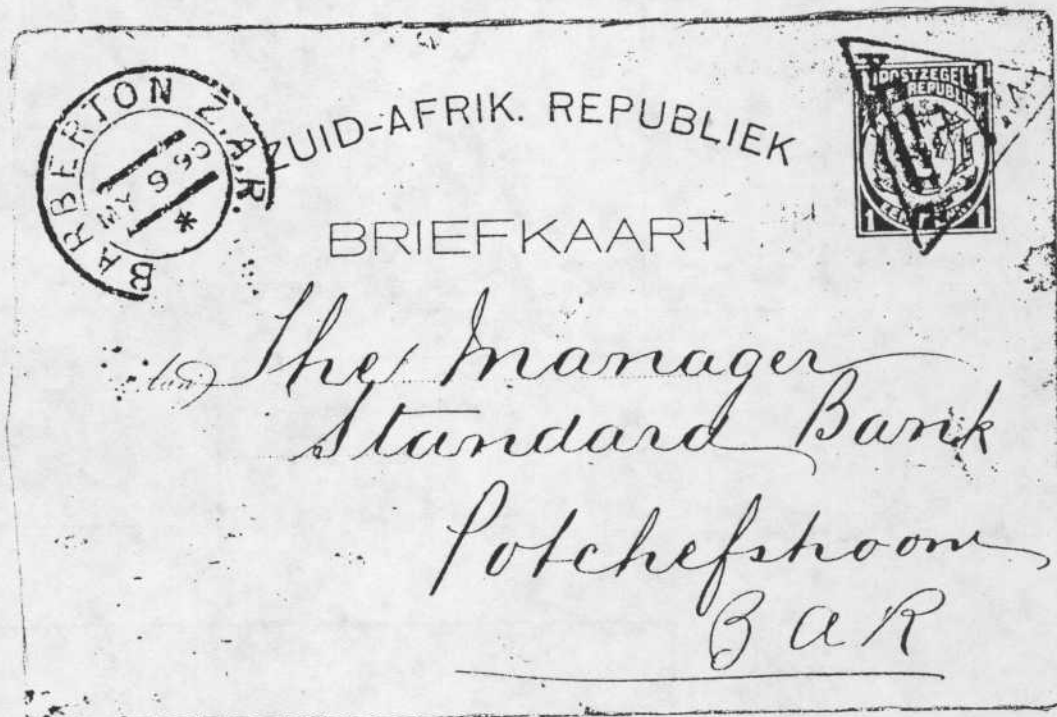 BARBERTON Z.A.R.
MY 9 99
*
ZUID-AFRIK. REPUBLIEK
BRIEFKAART
POSTZEGEL
REPUBLIEK
1 1
The Manager
Standard Bank
Potchefstroom
Z A R